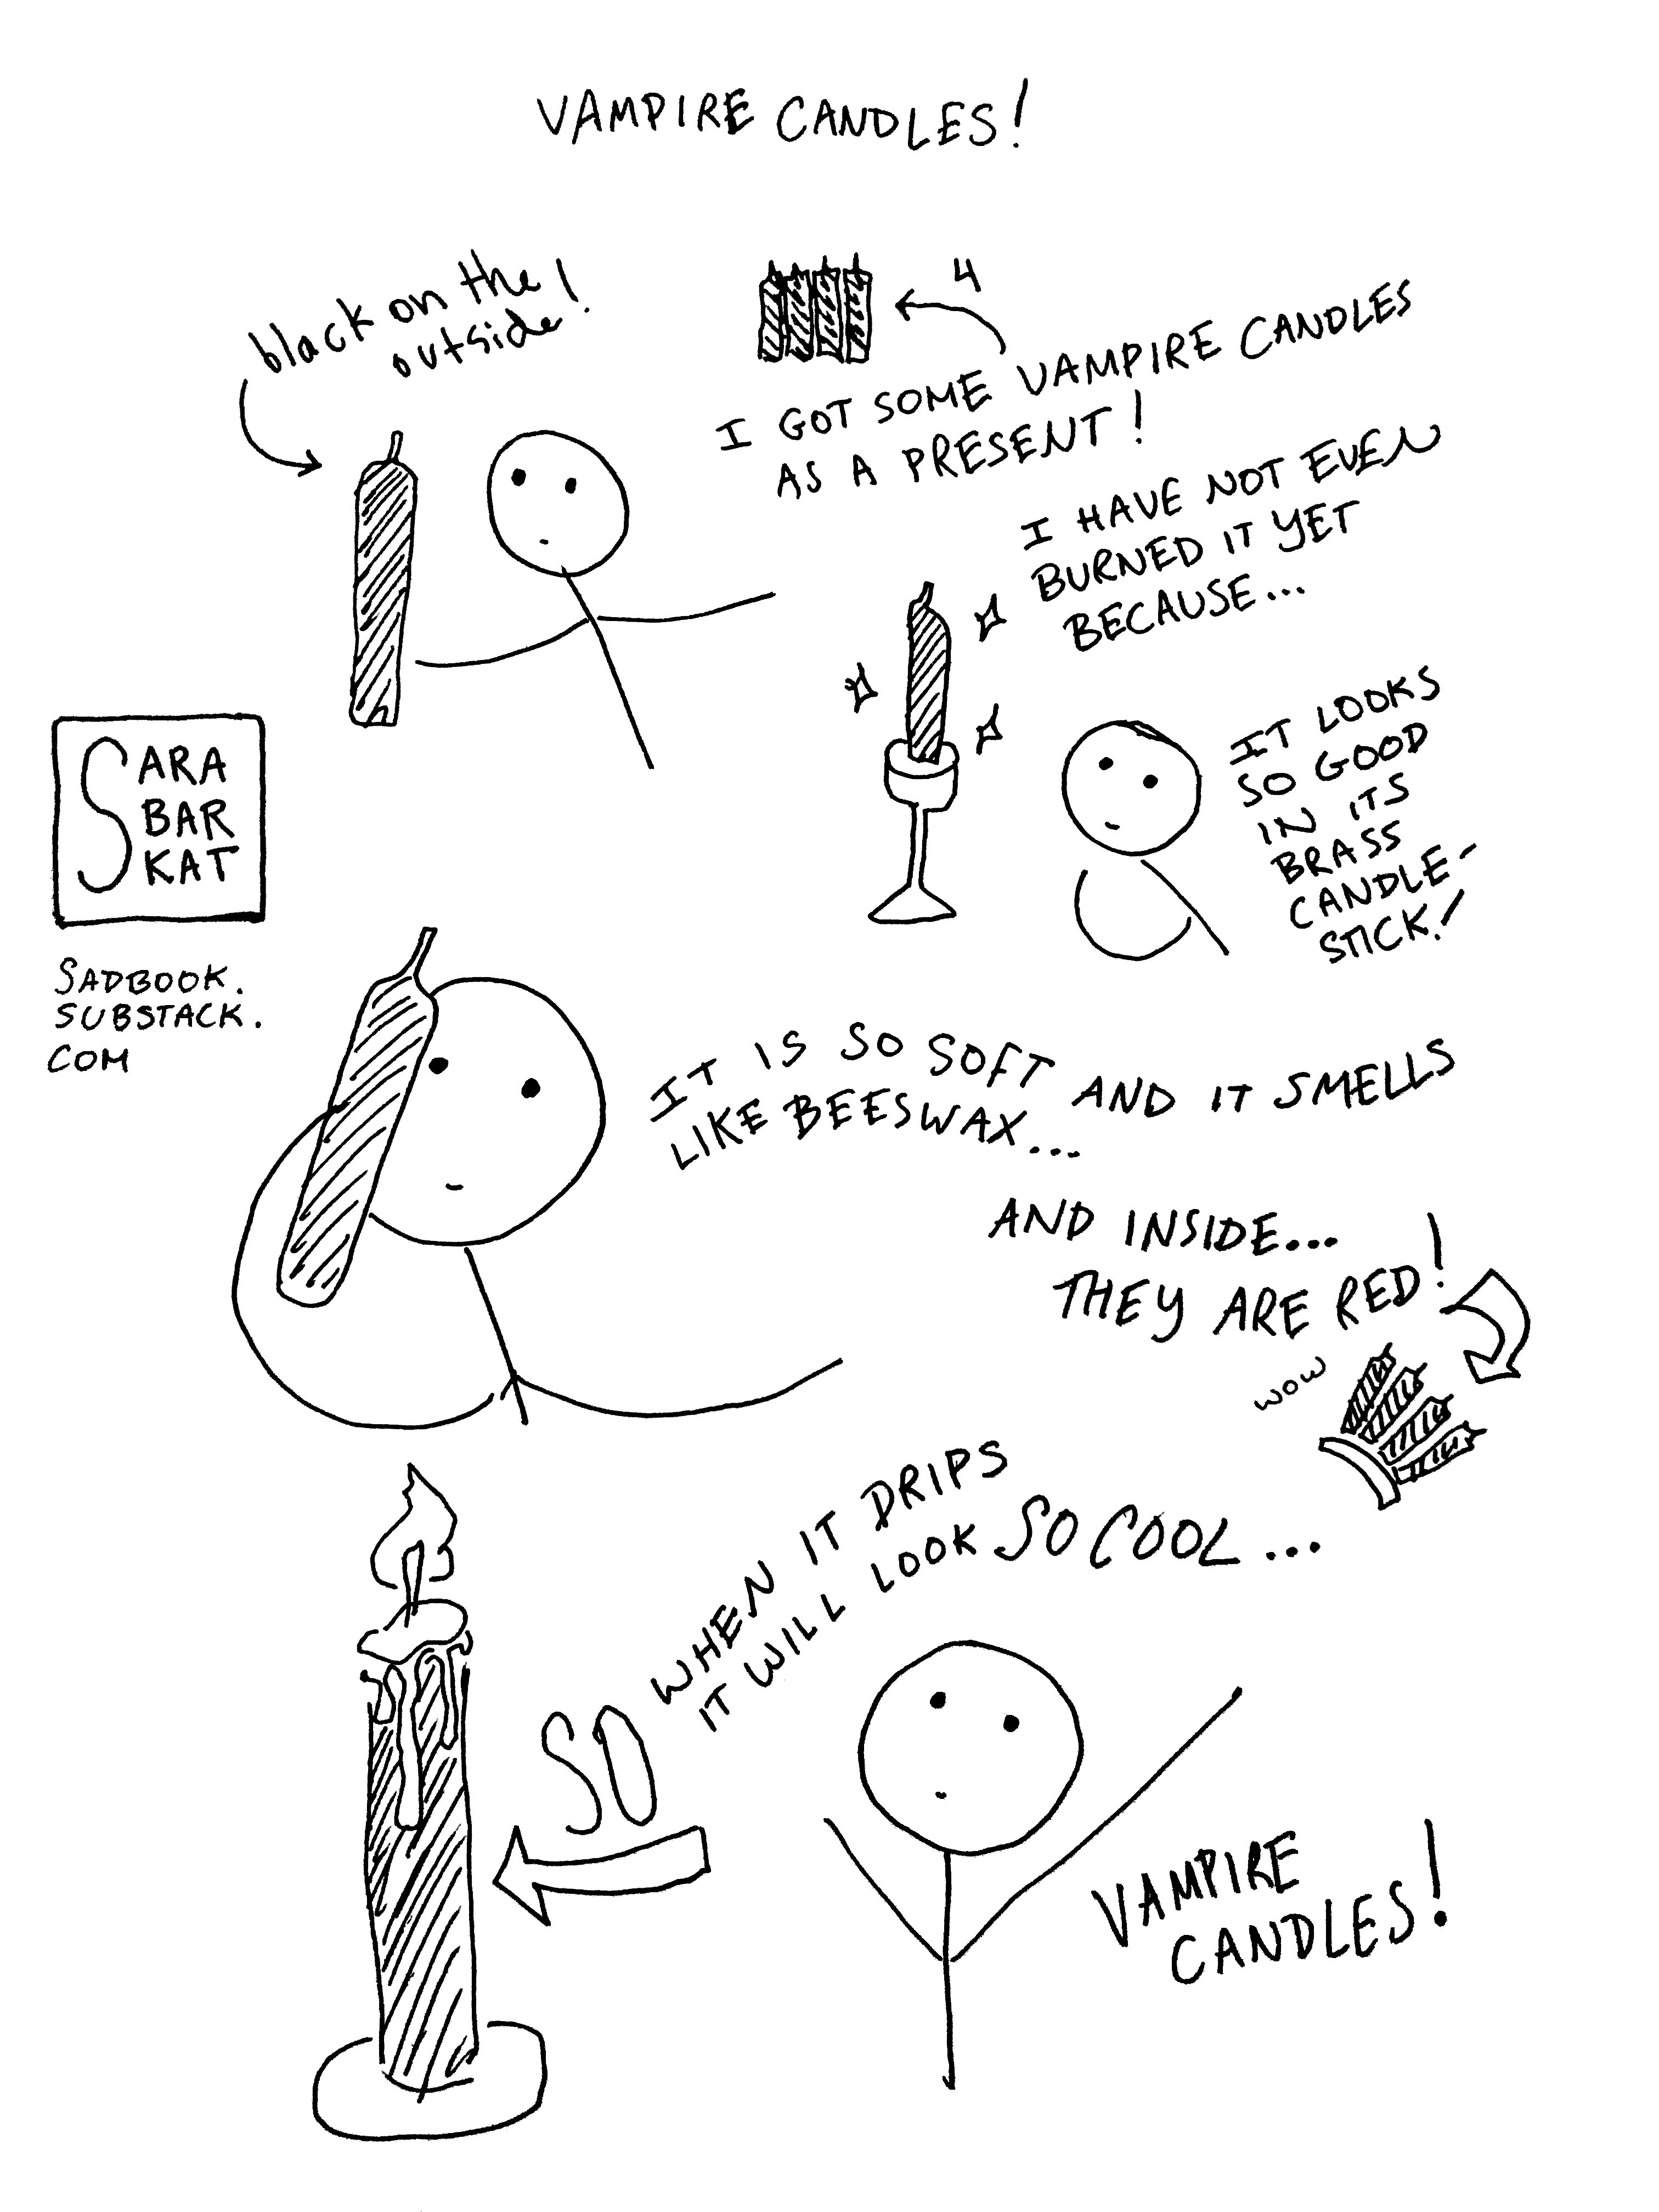 VAMPIRE CANDLES!
black on the
outside!
4
I GOT SOME VAMPIRE CANDLES
AS A PRESENT!
I HAVE NOT EVEN
BURNED IT YET
BECAUSE...
IT LOOKS
SO GOOD
IN ITS
BRASS
CANDLE-
STICK!
SARA
BAR
KAT
SADBOOK.
SUBSTACK.
COM
IT IS SO SOFT AND IT SMELLS
LIKE BEESWAX...
AND INSIDE...
THEY ARE RED!
WOW
SO
WHEN IT DRIPS
IT WILL LOOK SO COOL...
VAMPIRE
CANDLES!